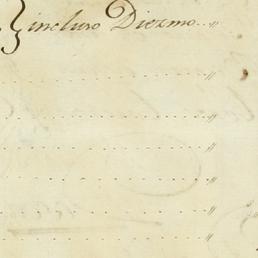 incluso Diezmo